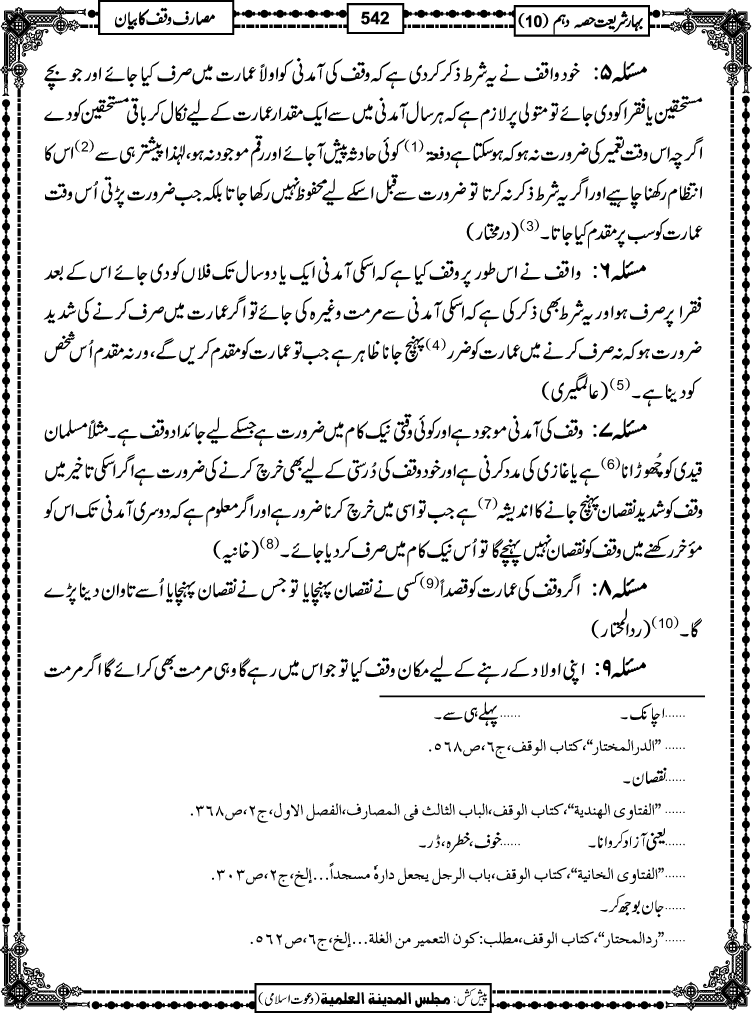 بہار شریعت حصہ دہم (10)
542
مصارف وقف کا بیان
مسئلہ ۵: خود واقف نے یہ شرط ذکر کردی ہے کہ وقف کی آمدنی کو اولاً عمارت میں صرف کیا جائے اور جو بچے
مستحقین یا فقرا کو دی جائے تو متولی پر لازم ہے کہ ہر سال آمدنی میں سے ایک مقدار عمارت کے لیے نکال کر باقی مستحقین کو دے
اگرچہ اس وقت تعمیر کی ضرورت نہ ہو کہ ہو سکتا ہے دفعۃ (1) کوئی حادثہ پیش آجائے اور رقم موجود نہ ہو، لہٰذا پیشتر ہی سے (2) اس کا
انتظام رکھنا چاہیے اور اگر یہ شرط ذکر نہ کرتا تو ضرورت سے قبل اسکے لیے محفوظ نہیں رکھا جاتا بلکہ جب ضرورت پڑتی اُس وقت
عمارت کو سب پر مقدم کیا جاتا۔ (3) (درمختار)
مسئلہ ۶: واقف نے اس طور پر وقف کیا ہے کہ اسکی آمدنی ایک یا دو سال تک فلاں کو دی جائے اس کے بعد
فقرا پر صرف ہو اور یہ شرط بھی ذکر کی ہے کہ اسکی آمدنی سے مرمت وغیرہ کی جائے تو اگر عمارت میں صرف کرنے کی شدید
ضرورت ہو کہ نہ صرف کرنے میں عمارت کو ضرر (4) پہنچ جانا ظاہر ہے جب تو عمارت کو مقدم کریں گے، ورنہ مقدم اُس شخص
کو دینا ہے۔ (5) (عالمگیری)
مسئلہ ۷: وقف کی آمدنی موجود ہے اور کوئی وقتی نیک کام میں ضرورت ہے جسکے لیے جائداد وقف ہے۔ مثلاً مسلمان
قیدی کو چھوڑانا (6) ہے یا غازی کی مدد کرنی ہے اور خود وقف کی دُرستی کے لیے بھی خرچ کرنے کی ضرورت ہے اگر اسکی تاخیر میں
وقف کو شدید نقصان پہنچ جانے کا اندیشہ (7) ہے جب تو اسی میں خرچ کرنا ضرور ہے اور اگر معلوم ہے کہ دوسری آمدنی تک اس کو
مؤخر رکھنے میں وقف کو نقصان نہیں پہنچے گا تو اُس نیک کام میں صرف کر دیا جائے۔ (8) (خانیہ)
مسئلہ ۸: اگر وقف کی عمارت کو قصداً (9) کسی نے نقصان پہنچایا تو جس نے نقصان پہنچایا اُسے تاوان دینا پڑے
گا۔ (10) (ردالمحتار)
مسئلہ ۹: اپنی اولاد کے رہنے کے لیے مکان وقف کیا تو جو اس میں رہے گا وہی مرمت بھی کرائے گا اگر مرمت
......اچانک۔ ......پہلے ہی سے۔
......"الدرالمختار"، کتاب الوقف، ج٦، ص٥٦٨.
......نقصان۔
......"الفتاوی الھندیة"، کتاب الوقف، الباب الثالث فی المصارف، الفصل الاول، ج٢، ص٣٦٨.
......یعنی آزاد کروانا۔ ......خوف، خطرہ، ڈر۔
......"الفتاوی الخانیة"، کتاب الوقف، باب الرجل یجعل دارہٗ مسجداً...إلخ، ج٢، ص٣٠٣.
......جان بوجھ کر۔
......"ردالمحتار"، کتاب الوقف، مطلب: کون التعمیر من الغلة...إلخ، ج٦، ص٥٦٢.
پیش کش: مجلس المدینة العلمیة (دعوت اسلامی)